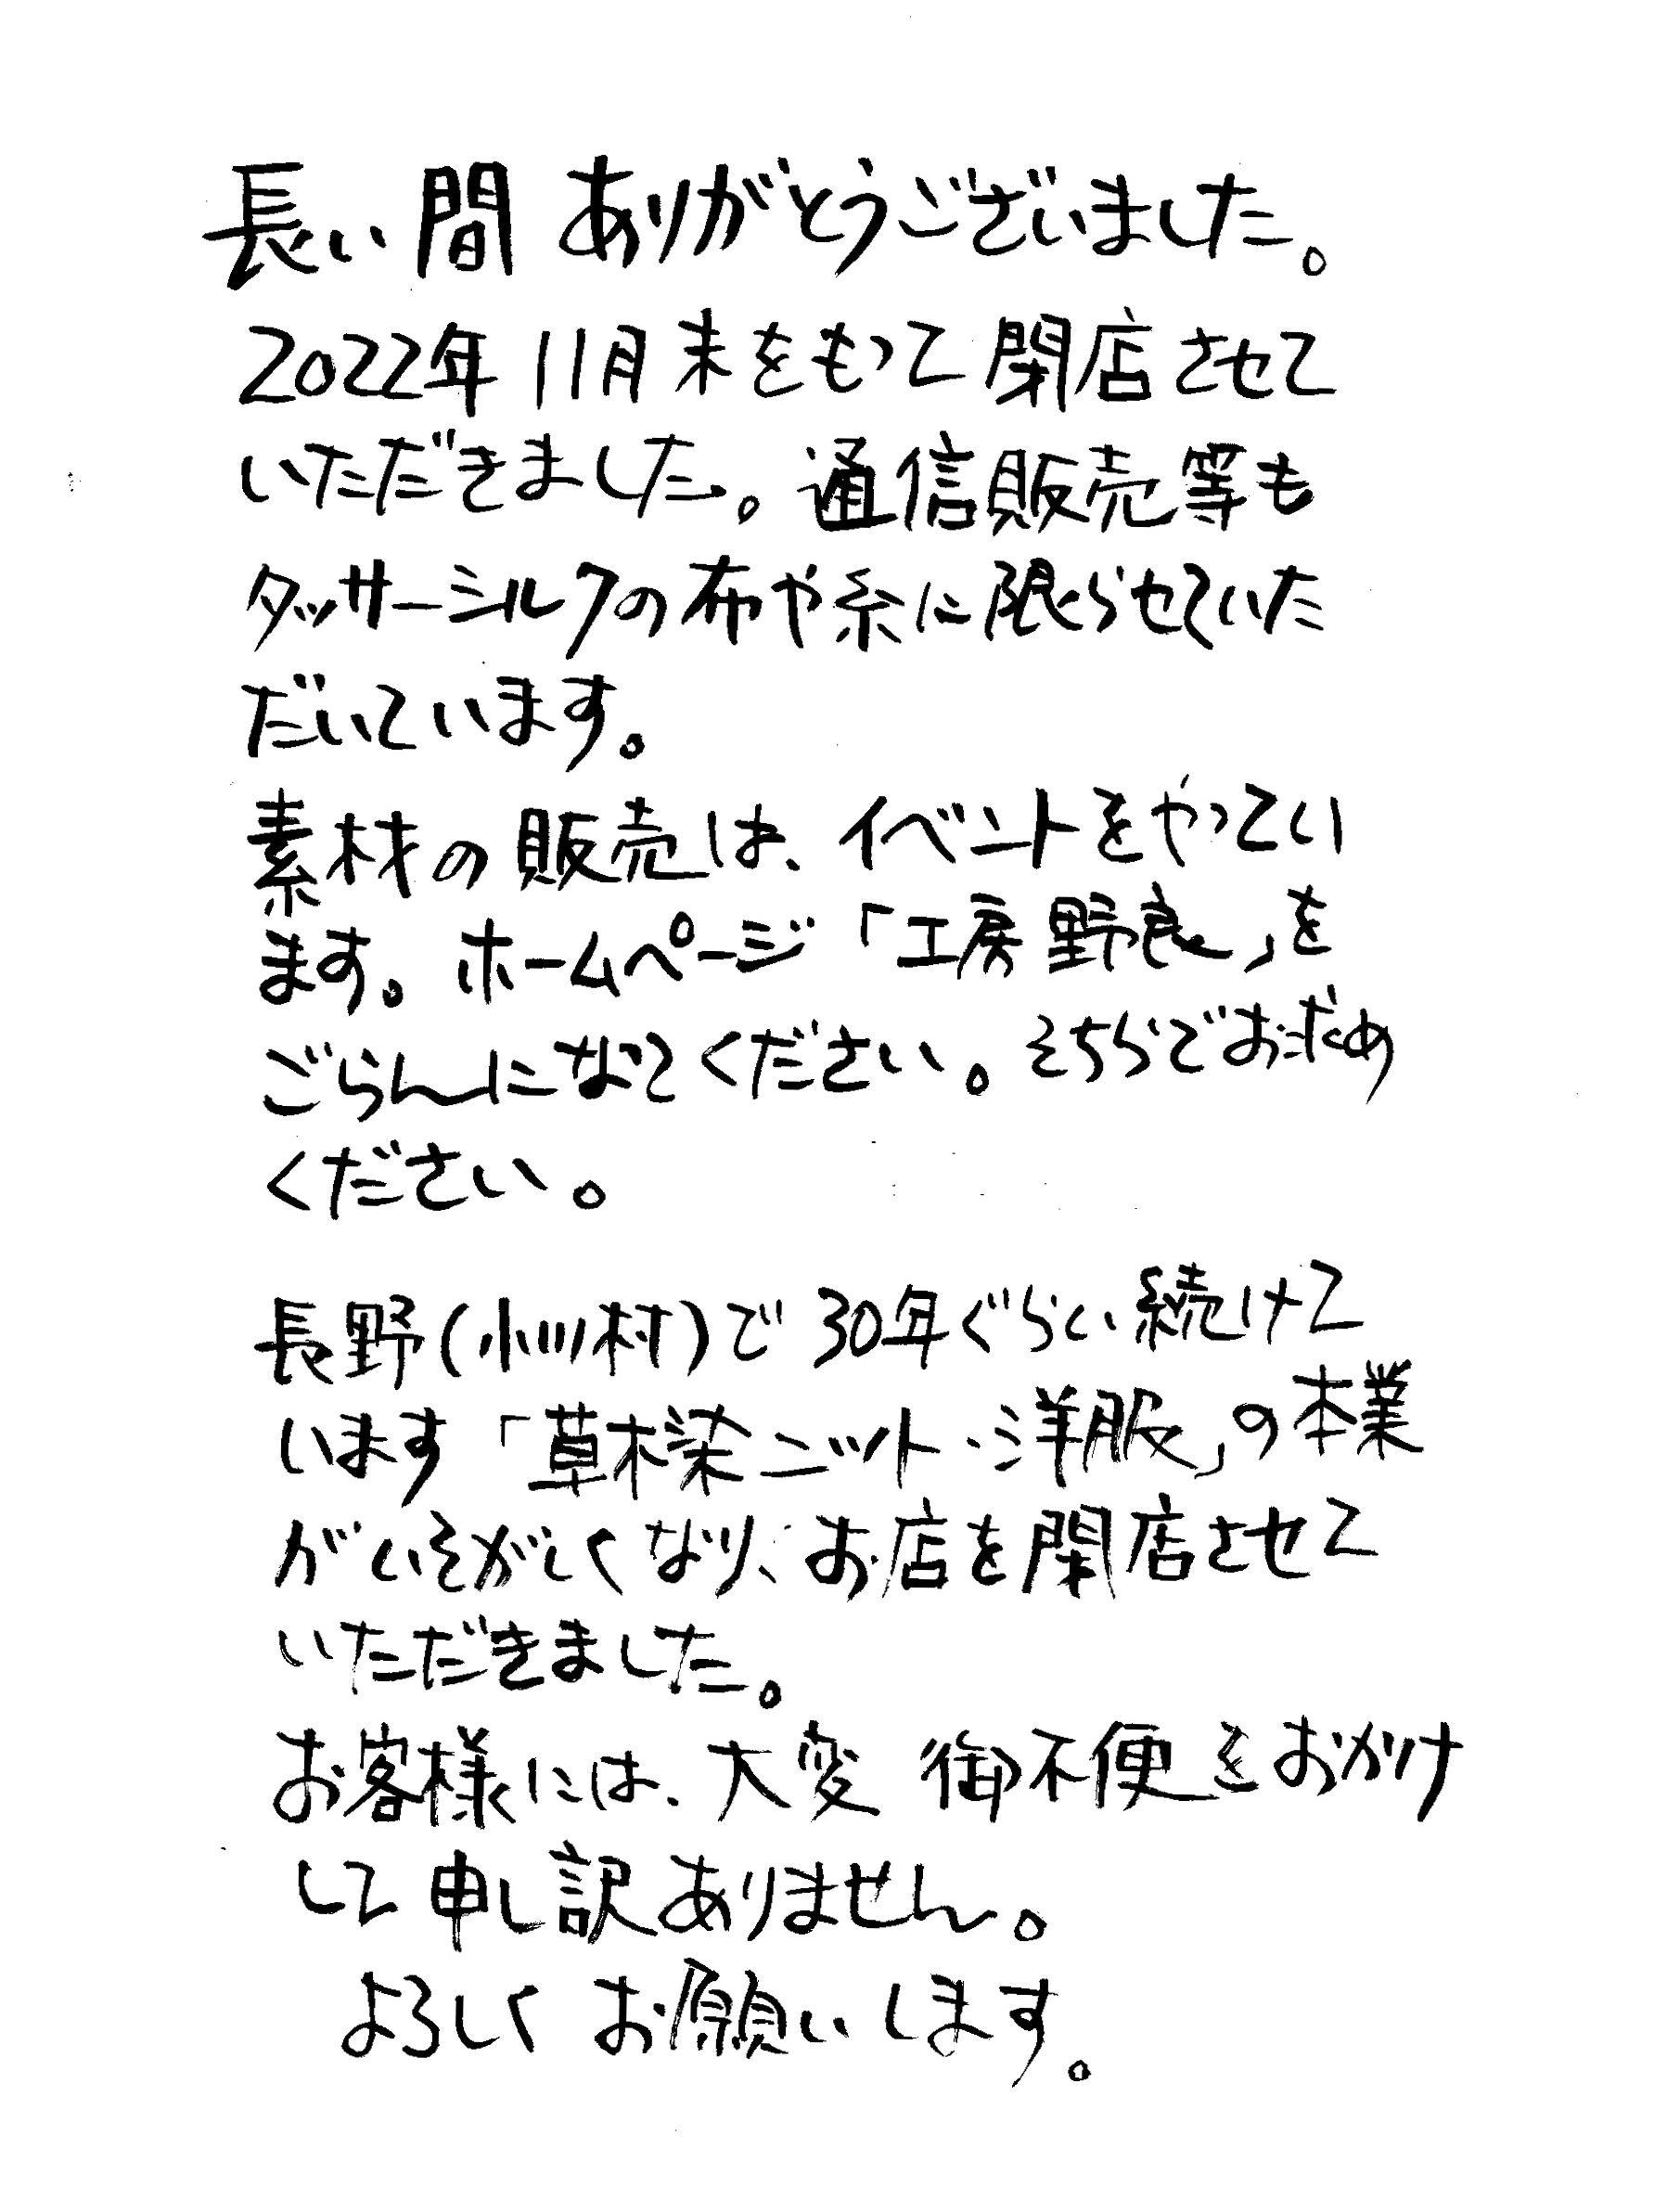 長い間 ありがとうございました。
2022年11月末をもって閉店させて
いただきました。通信販売等も
タッサーシルクの布や糸に限らせていた
だいています。
素材の販売は、イベントをやってい
ます。ホームページ「工房 野良」を
ごらんになってください。そちらでお求め
ください。
長野(小川村)で30年ぐらい続けて
います「草木染ニット・洋服」の本業
がいそがしくなり、お店を閉店させて
いただきました。
お客様には、大変 御不便をおかけ
して申し訳ありません。
よろしくお願いします。